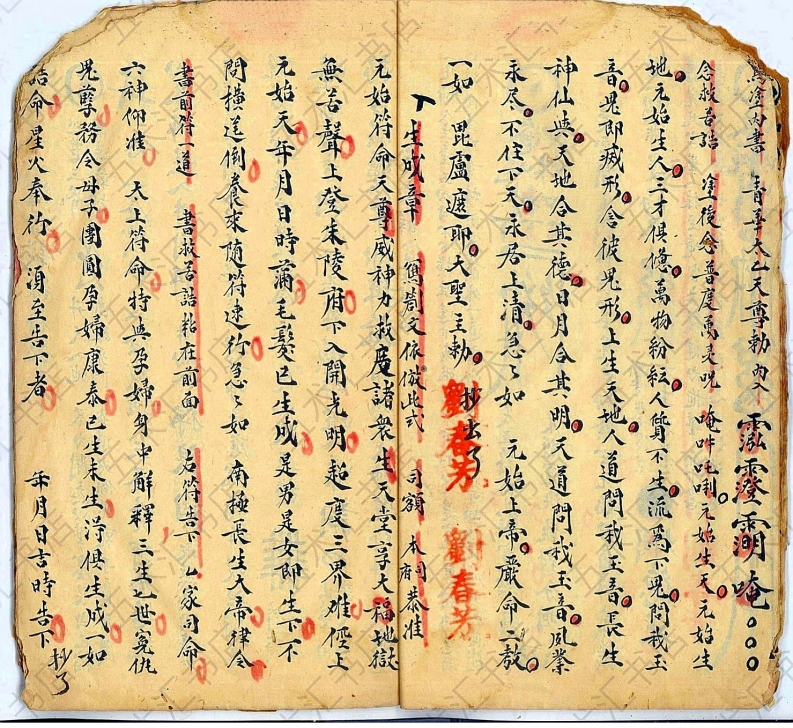 塗內書 青享太乙天尊勅 內入 霐霪霢唵
念救苦誥 塗後念普度萬灵咒 唵吽吒唎元始生天元始生
地元始生人三才俱億萬物紛紜人貨不生流為下鬼問我玉
音鬼即滅形舍彼鬼形上生天地人道問我玉音長生
神仙與天地合其德日月合其明天道問我玉音夙業
永尽不住下天永居上清急々如 元始上帝嚴命二敖
一如 毘盧遮耶大聖主勅 抄出了 劉春芳 劉春芳
下生成章 篤茼文依倣此式 司額 本府恭准
元始符命天尊威神力救度諸衆生天堂享大福地獄
無苦聲上登朱陵府下入開光明超度三界难俓上
元始天年月日時蒲毛髮已生成是男是女即生下不
問橫送倒養來隨符速行急々如 南極長生大帝律令
書前符一道 書救苦誥粘在前面 右符告下 乙家司命
六神仰准 太上符命特與孕婦身中解釋三生七世冤仇
鬼孽務令母子團圓孕婦康泰已生未生淂俱生成一如
誥命星火奉行 湏至告下者 年月日吉時告下 抄了
五术汇书店